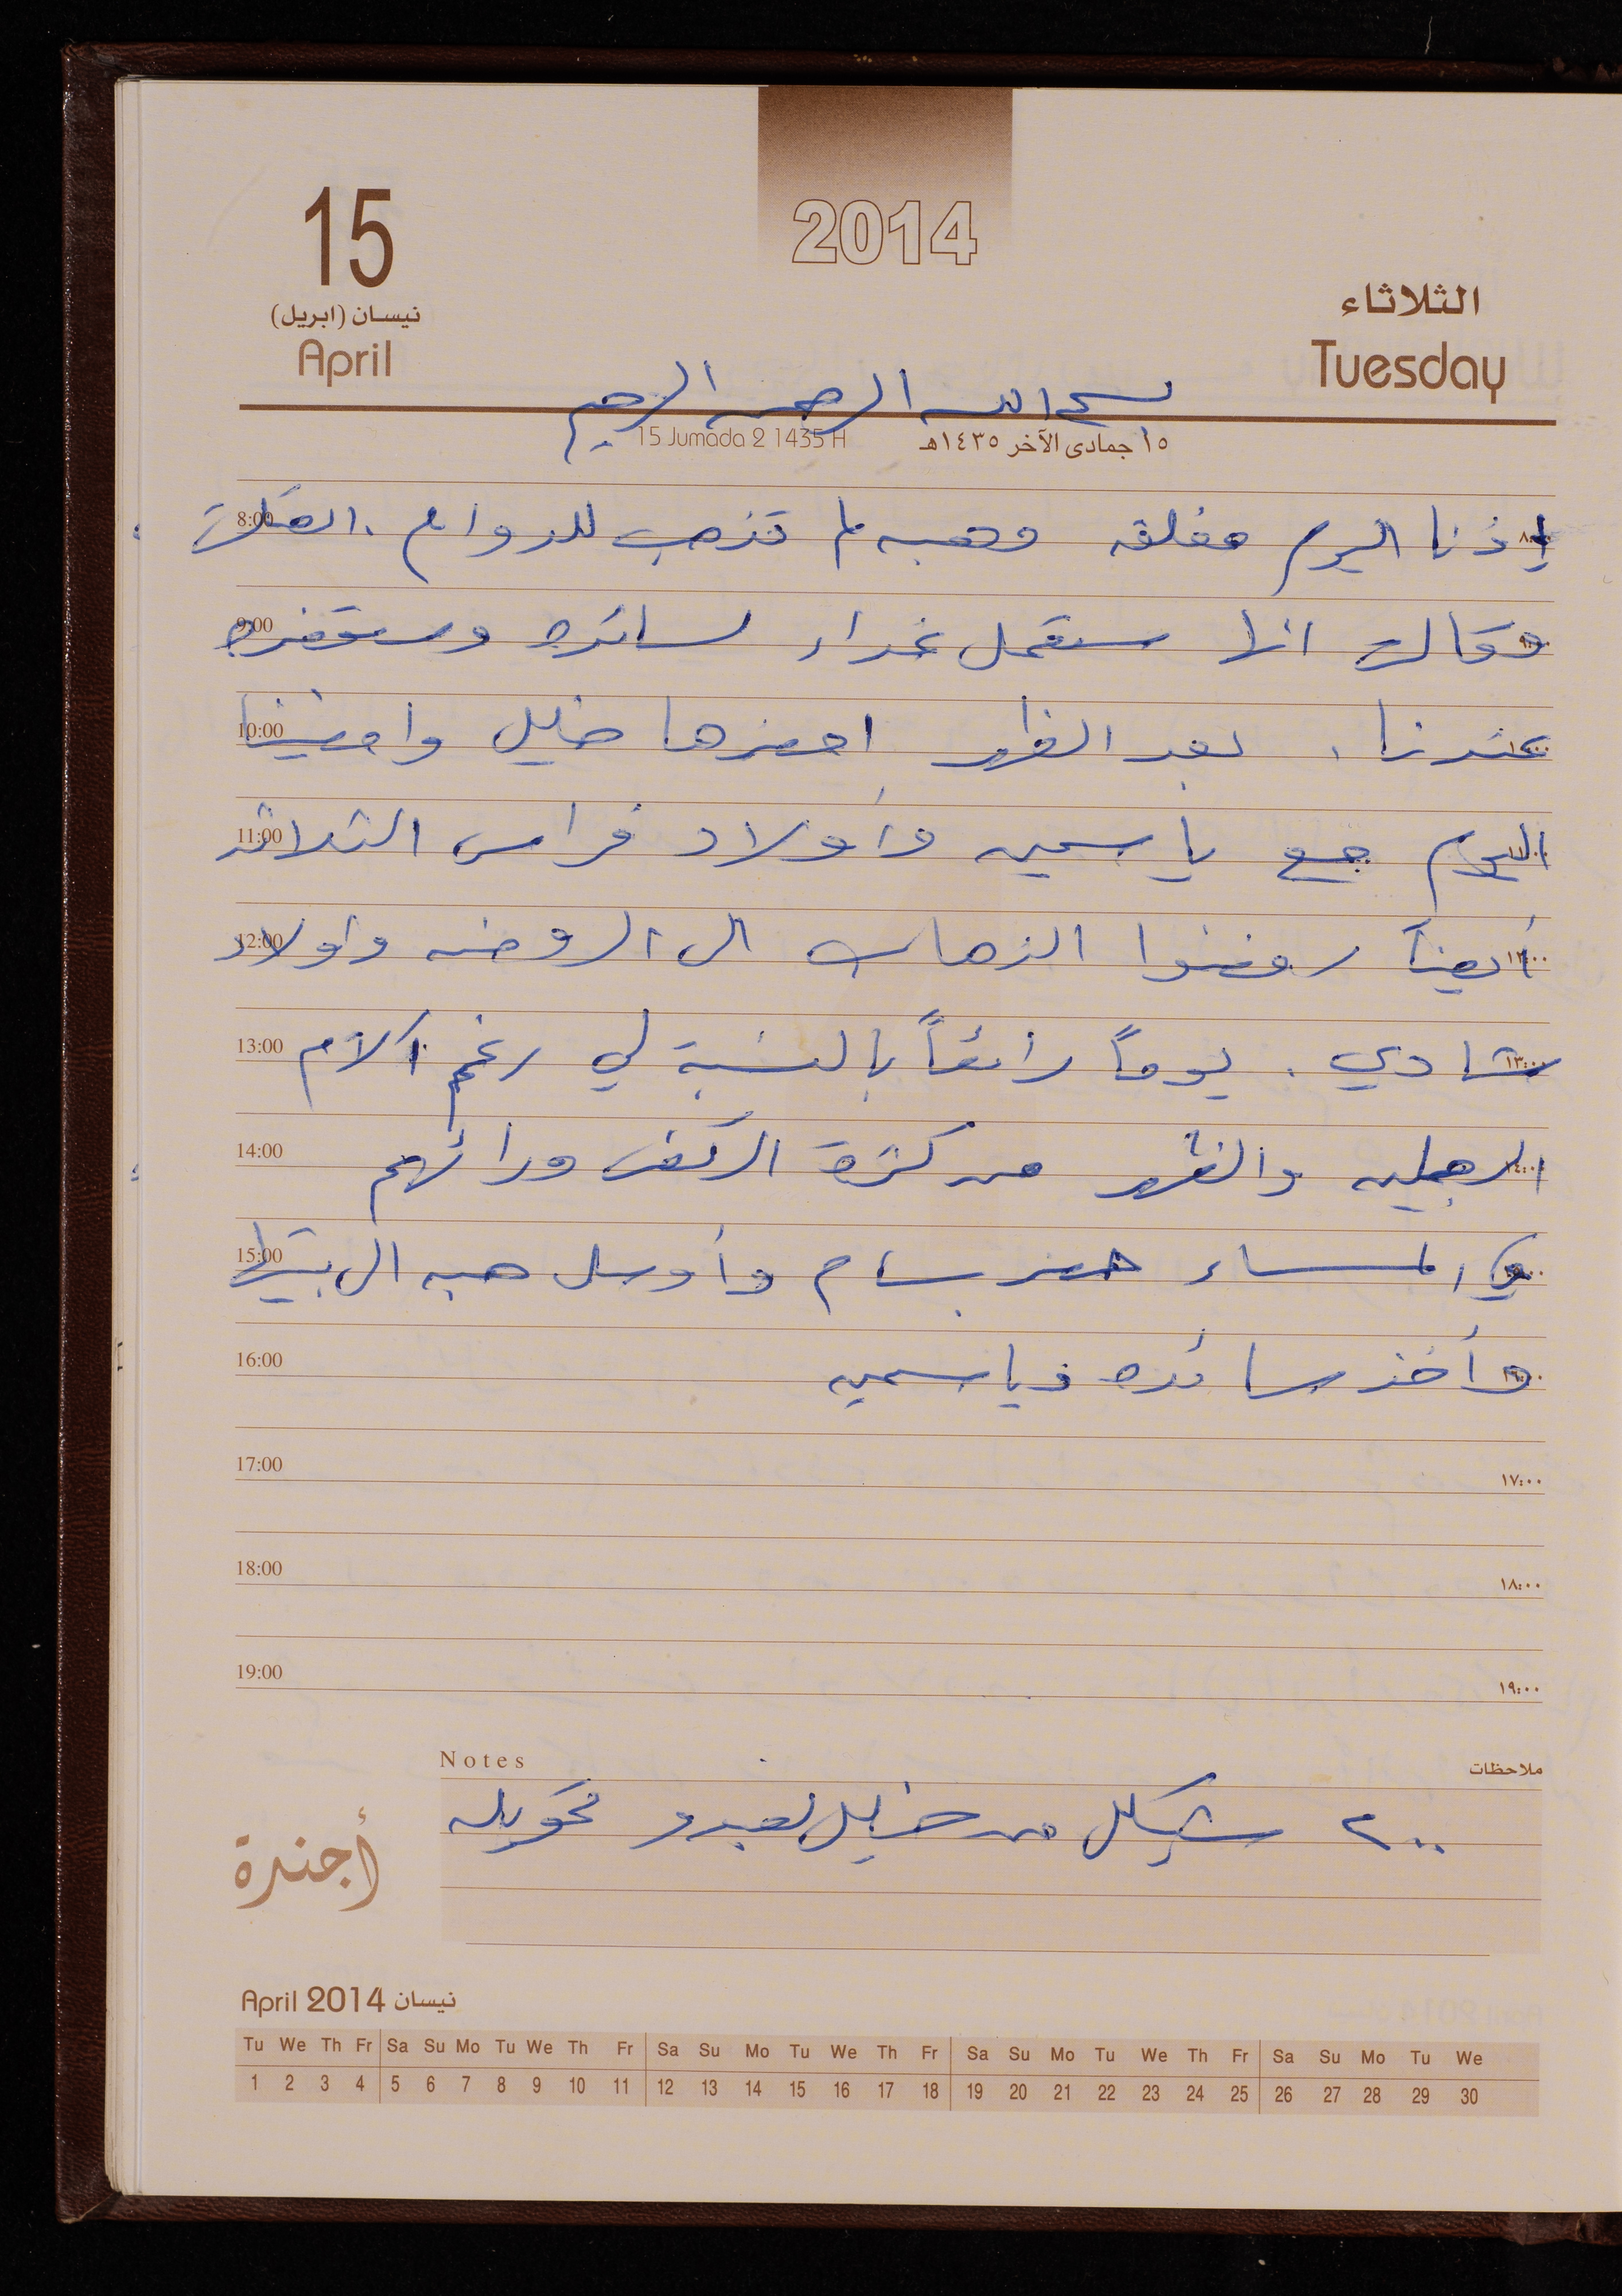 2014
15
نيسان (ابريل)
April
الثلاثاء
Tuesday
بسم الله الرحمن الرحيم
15 Jumada 2 1435 H ١٥ جمادى الآخر ١٤٣٥هـ
8:00 اليوم مغلقه وهبه لم تذهب للدوام . ٨:٠٠
9:00 وقالت انها ستعمل غداء لسائده وستحضره ٩:٠٠
10:00 عندنا . بعد الظهر احضرها خليل وامضينا ١٠:٠٠
11:00 اليوم مع ياسمين وأولاد فراس الثلاثه ١١:٠٠
12:00 أيضاً رفضوا الذهاب الى الروضه وأولاد ١٢:٠٠
13:00 شادي . يوماً رائعاً بالنسبة لي رغم الام ١٣:٠٠
14:00 الرجلين والظهر من كثرة الركض ورائهم ١٤:٠٠
15:00 في المساء حضر بسام وأوصل هبه الى بيتها ١٥:٠٠
16:00 وأخذ سائده وياسمين ١٦:٠٠
17:00 ١٧:٠٠
18:00 ١٨:٠٠
19:00 ١٩:٠٠
Notes ملاحظات
٢٠٠ شيكل من خليل لعبدو تحويله
أجندة
April 2014 نيسان
Tu We Th Fr Sa Su Mo Tu We Th Fr Sa Su Mo Tu We Th Fr Sa Su Mo Tu We Th Fr Sa Su Mo Tu We
1 2 3 4 5 6 7 8 9 10 11 12 13 14 15 16 17 18 19 20 21 22 23 24 25 26 27 28 29 30